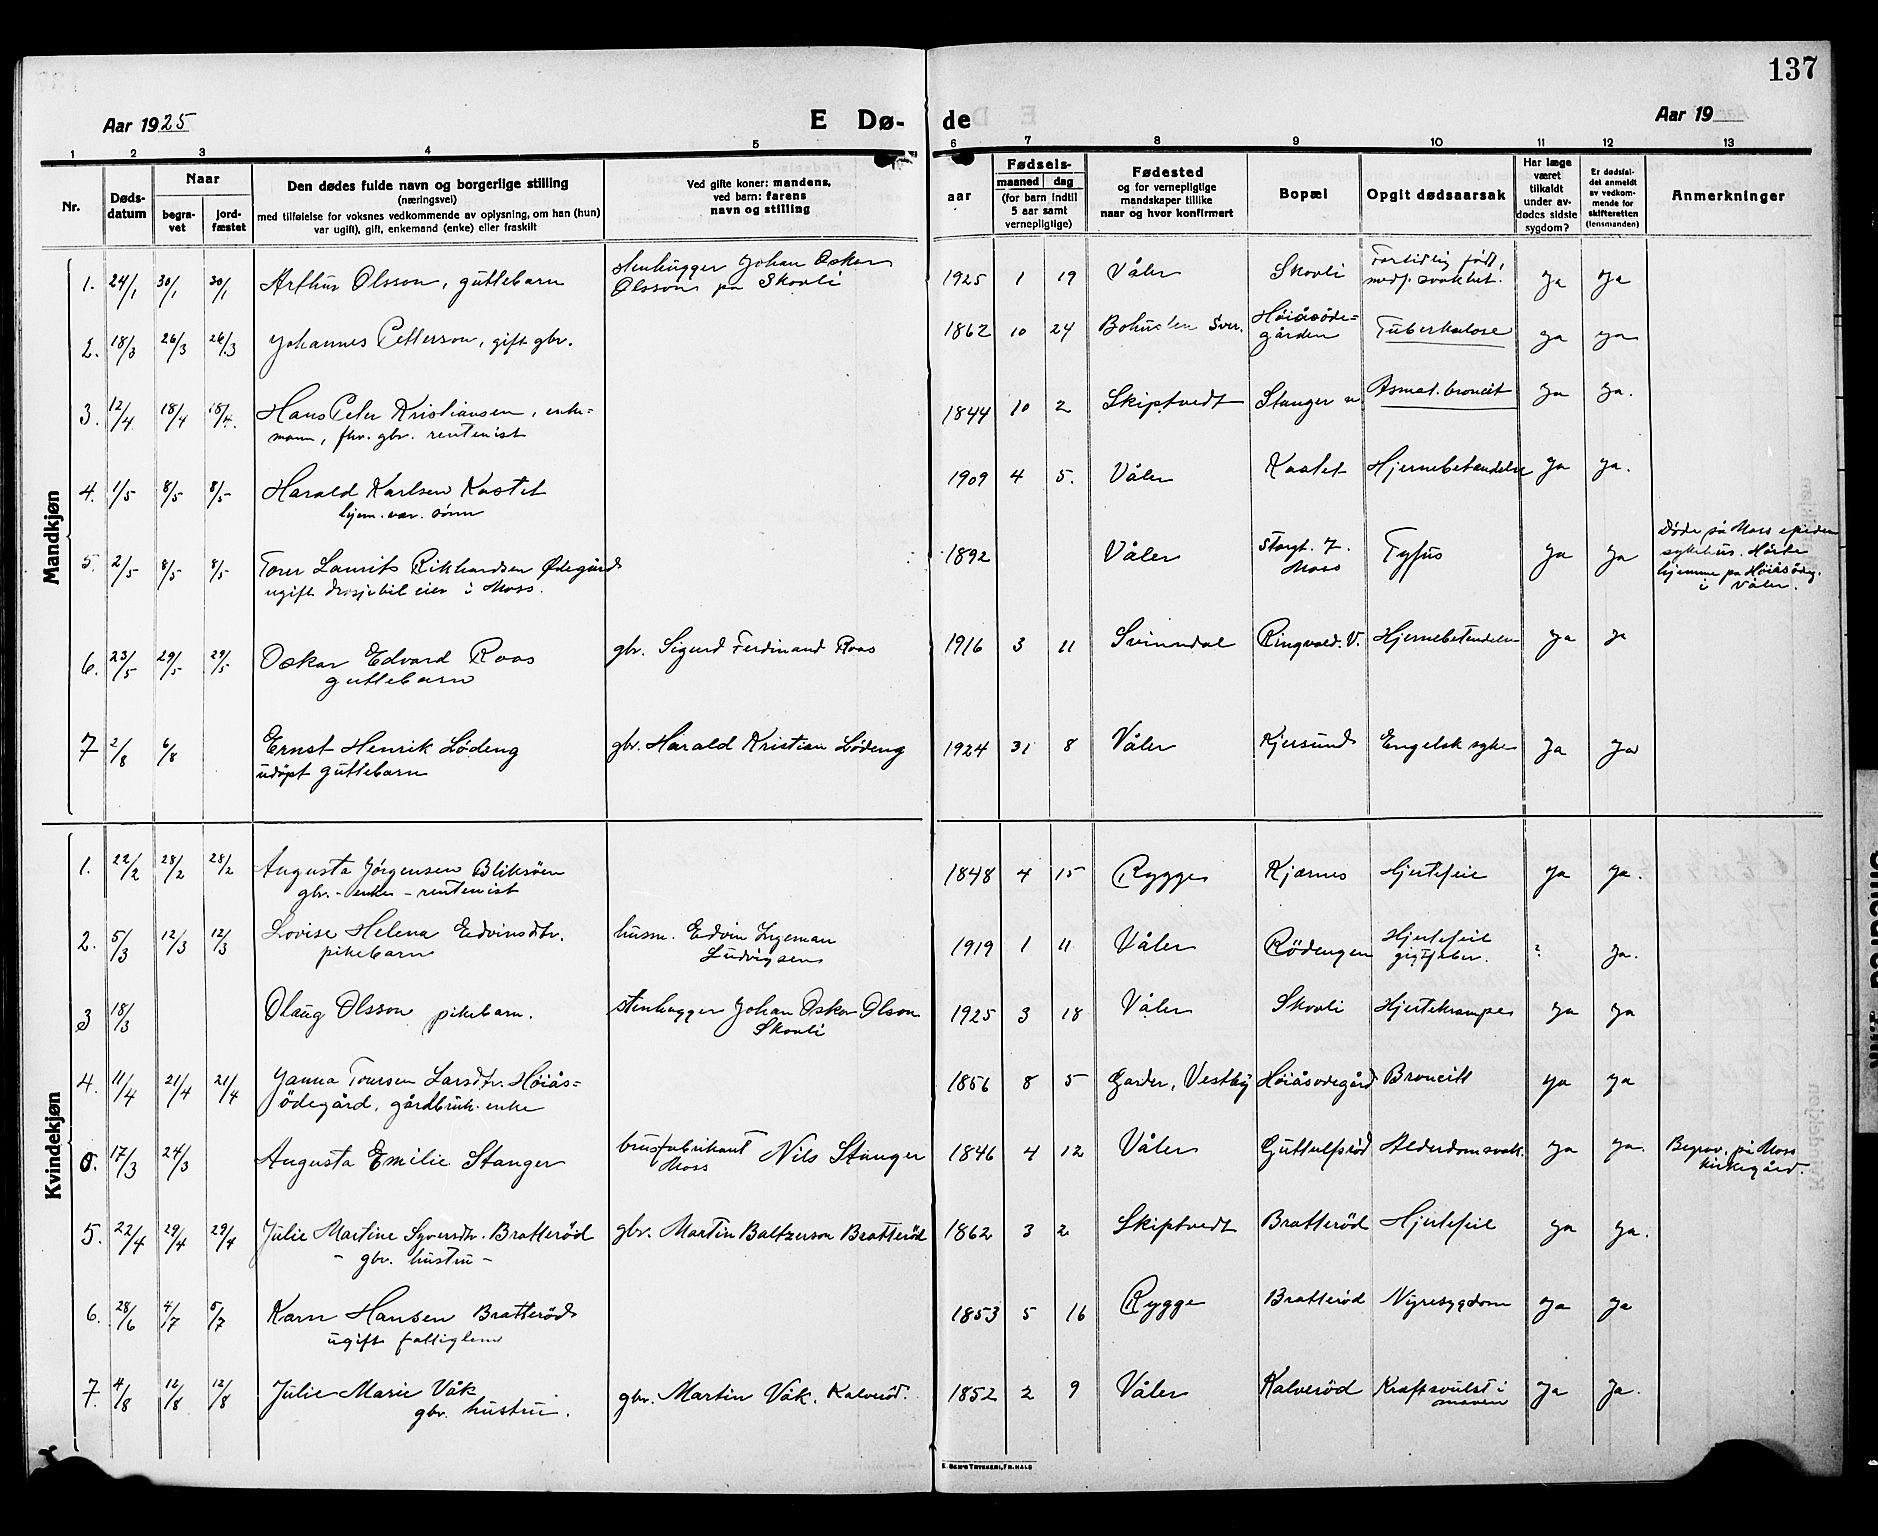 137
Aar 1925
E Dø-
de
Aar 19
1 2 3 4 5 6 7 8 9 10 11 12 13
Nr.
Døds-
datum
Naar
begra-
vet
jord-
fæstet
Den dødes fulde navn og borgerlige stilling
(næringsvei)
med tilføielse for voksnes vedkommende av oplysning, om han (hun)
var ugift), gift, enkemand (enke) eller fraskilt
Ved gifte koner: mandens,
ved barn: farens
navn og stilling
Fødsels-
aar
maaned dag
(for barn indtil
5 aar samt
vernepligtige)
Fødested
og for vernepligtige
mandskaper tillike
naar og hvor konfirmert
Bopæl
Opgit dødsaarsak
Har læge
været
tilkaldt
under av-
dødes sidste
sygdom?
Er dødsfal-
det anmeldt
av vedkom-
mende for
skifteretten
(lensmanden)
Anmerkninger
Mandkjøn
1. 24/1 30/1 30/1 Arthur Olsson, guttebarn
stenhugger Johan Oskar
Olsson på Skovli
1925 1 19 Våler Skovli
Fortidlig født,
medf. svakhet.
ja ja
2. 18/3 26/3 26/3 Johannes Petterson, gift gbr.
1862 10 24 Bohuslen Sver.
Høiåsøde-
gården
Tuberkulose ja ja
3. 12/4 18/4 18/4. Hans Peter Kristiansen, enke-
mann, fhv. gbr. rentenist
1844 10 2 Skiptvedt Stanger Asmat. broncit ja ja.
4. 1/5 8/5 8/5 Harald Karlsen Kastet
hjem. vær. sønn
1909 4 5. Våler Kastet Hjernebetændelse ja ja.
5. 2/5 8/5 8/5 Torer Laurits Rikhardsen Ødegård
ugift drosjebil eier i Moss.
1892 Våler
Storgt. 7.
Moss
Tyfus ja ja
Døde på Moss epidem
sykehus. Hørte
hjemme på Høiåsødeg.
i Våler.
6. 23/5 29/5 29/5 Oskar Edvard Roos
guttebarn
gbr. Sigurd Ferdinand Roos
1916 3 11 Svinndal Ringvold. V. Hjernebetendelse ja ja
7 2/8 6/8 Ernst Henrik Lødeng
udøpt guttebarn
gbr. Harald Kristian Lødeng
1924 31 8 Våler Kjersund Engelsk syke ja ja
Kvindekjøn
1. 22/2 28/2 28/2 Augusta Jørgensen Bliksøen
gbr. - enke - rentenist
1848 4 15 Rygge Kjærnes Hjertefeil ja ja.
2. 5/3 12/3 12/3 Lovise Helena Edvinsdtr.
pikebarn
husm. Edvin Ingeman
Ludvigsen
1919 1 11 Våler Rödengen
Hjertefeil
gigtfeber.
? ja.
3 18/3 Olaug Olsson pikebarn.
stenhugger Johan Oskar Olson
Skovli
1925 3 18 Våler Skovli Hjertekrampe ja ja
4. 11/4 21/4 21/4 Janna Toursen Larsdtr. Høiås-
ødegård, gårdbruk. enke
1856 8 5 Garder, Vestby Høiåsødegård Broncitt ja ja
0. 17/3 24/3 Augusta Emilie Stanger
brusfabrikant Nils Stanger
Moss
1846 4 12 Våler Guttulfsrød Alderdomsvak. ja ja.
Begrav. på Moss
kirkegård.
5. 22/4 29/4 29/4 Julie Martine Syversdtr. Bratterød
- gbr. hustru -
gbr. Martin Baltzerson Bratterød
1862 3 2 Skiptvedt Bratterød Hjertefeil ja ja.
6. 28/6 4/7 5/7 Karn Hansen Bratterød
ugift fattiglem
1853 5 16 Rygge Bratterød Nyresygdom ja ja
7. 4/8 12/8 12/8 Julie Marie Våk
gbr. hustru.
gbr. Martin Våk. Kalverød.
1852 2 9 Våler Kalverød
Kraftsvulst i
maven
ja ja.